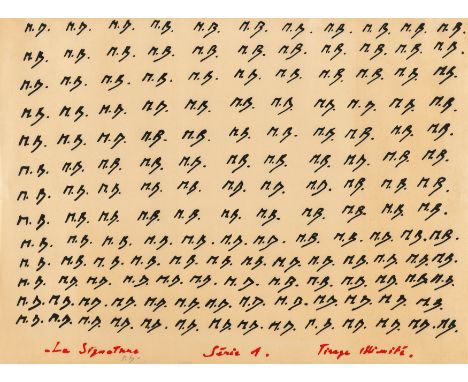 M.B. M.B. M.B. M.B. M.B. M.B. M.B. M.B. M.B. M.B. M.B.
M.B. M.B. M.B. M.B. M.B. M.B. M.B. M.B. M.B. M.B. M.B.
M.B. M.B. M.B. M.B. M.B. M.B. M.B. M.B. M.B. M.B. M.B.
M.B. M.B. M.B. M.B. M.B. M.B. M.B. M.B. M.B. M.B. M.B.
M.B. M.B. M.B. M.B. M.B. M.B. M.B. M.B. M.B. M.B. M.B.
M.B. M.B. M.B. M.B. M.B. M.B. M.B. M.B. M.B. M.B. M.B.
M.B. M.B. M.B. M.B. M.B. M.B. M.B. M.B. M.B. M.B. M.B.
M.B. M.B. M.B. M.B. M.B. M.B. M.B. M.B. M.B. M.B. M.B.
M.B. M.B. M.B. M.B. M.B. M.B. M.B. M.B. M.B. M.B. M.B. M.B.
M.B. M.B. M.B. M.B. M.B. M.B. M.B. M.B. M.B. M.B. M.B. M.B. M.B. M.B.
M.B. M.B. M.B. M.B. M.B. M.B. M.B. M.B. M.B. M.B. M.B. M.B. M.B. M.B.
M.B. M.B. M.B. M.B. M.B. M.B. M.B. M.B. M.B. M.B. M.B. M.B. M.B.
M.B. M.B. M.B. M.B. M.B. M.B. M.B. M.B. M.B. M.B. M.B. M.B. M.B. M.B.
La Signature Série 1. Tirage illimité.